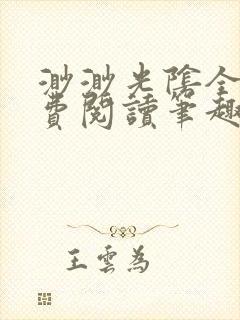 渺渺光陰全
費閱讀筆趣
王雲為